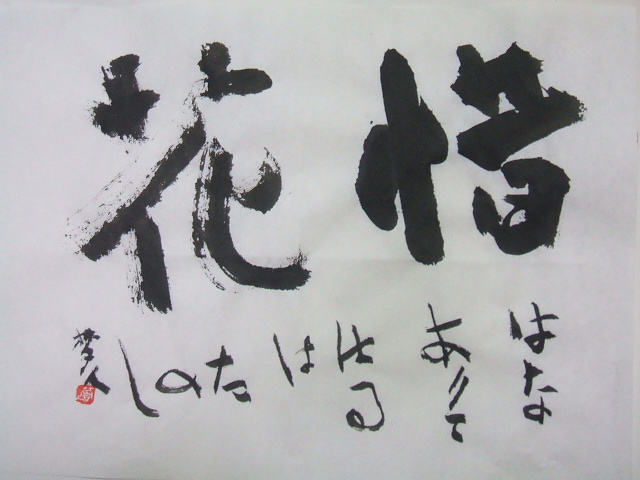 惜花
はな
ありて
はる
は
たの
し